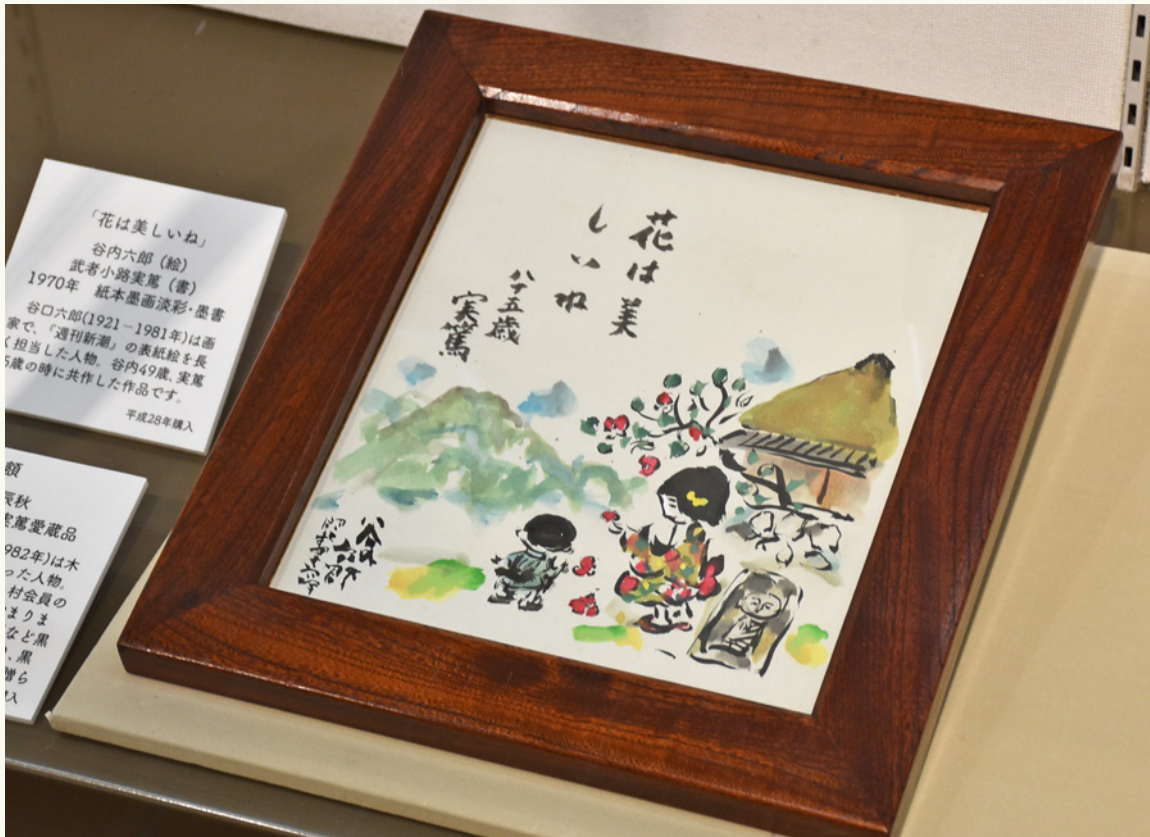 「花は美しいね」
谷内六郎（絵）
武者小路実篤（書）
1970年　紙本墨画淡彩・墨書
谷口六郎(1921－1981年)は画
家で、『週刊新潮』の表紙絵を長
く担当した人物。谷内49歳、実篤
5歳の時に共作した作品です。
平成28年購入
額
辰秋
実篤愛蔵品
982年)は木
った人物。
村会員の
まりま
など黒
、黒
贈ら
入
花は美
しいね
八十五歳
実篤
谷内六郎